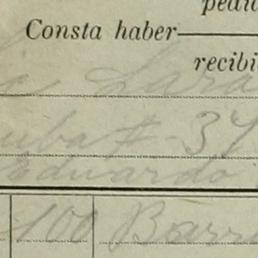 pedi
Consta haber
recibi
Cuba # 37
Eduardo
100 Barri